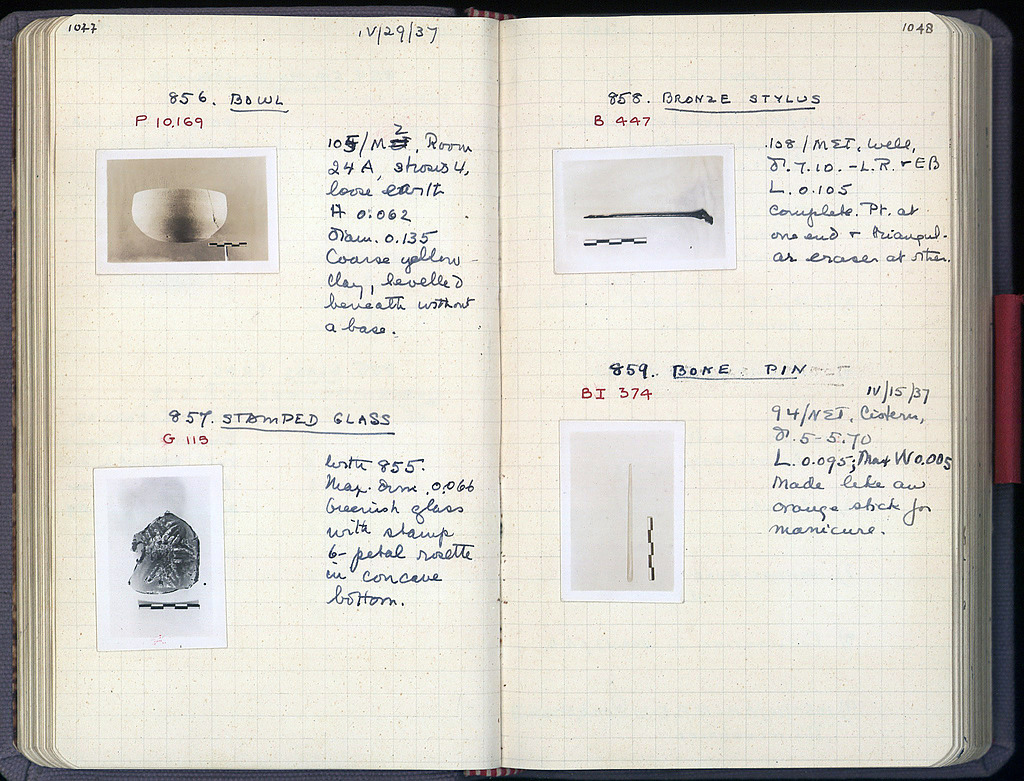 1047
IV/29/37
856. BOWL
P 10,169
2
Room
24 A,
loose earth
H 0.062
Diam. 0.135
Coarse yellow
clay, bevelled
beneath without
a base.
857. STAMPED GLASS
G 115
With 855.
Max. dim. 0.066
Greenish glass
with stamp
6-petal rosette
in concave
bottom.
1048
858. BRONZE STYLUS
B 447
108/ΜΣΤ, well,
7.10. - L.R. + EB
L. 0.105
Complete. Pt. at
one end + triangul-
ar eraser at other.
859. BONE PIN
BI 374
IV/15/37
94/ΝΣΤ, Cistern,
5-5.70
L. 0.095; Max W 0.005
Made like an
orange stick for
manicure.